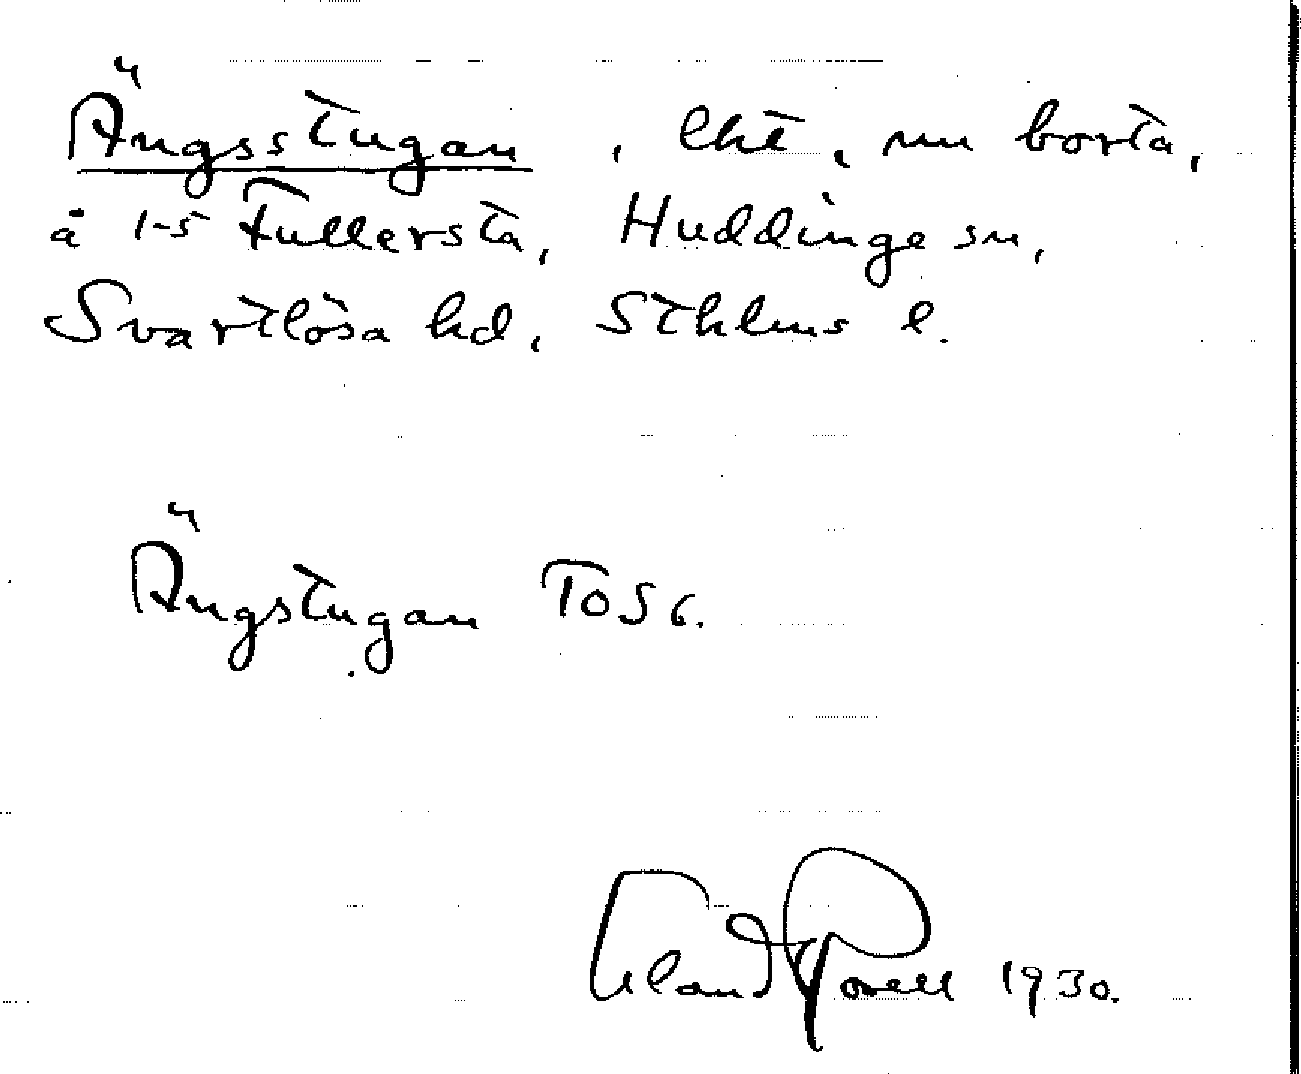 Ängsstugan, lht, nu borta,
å 1-5 Fullersta, Huddinge sn,
Svartlösa hd, Sthlms l.
Ängstugan TOS 6.
1930.